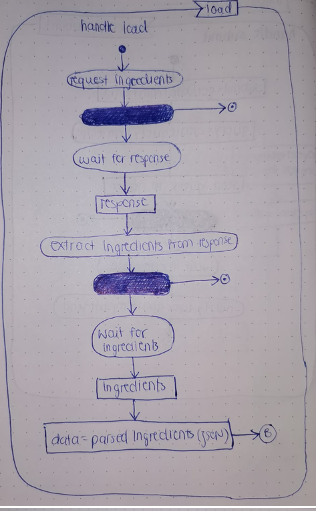 load
handle load
request ingredients
wait for response
response
extract ingredients from response
wait for
ingredients
ingredients
data = parsed ingredients (JSON)
B